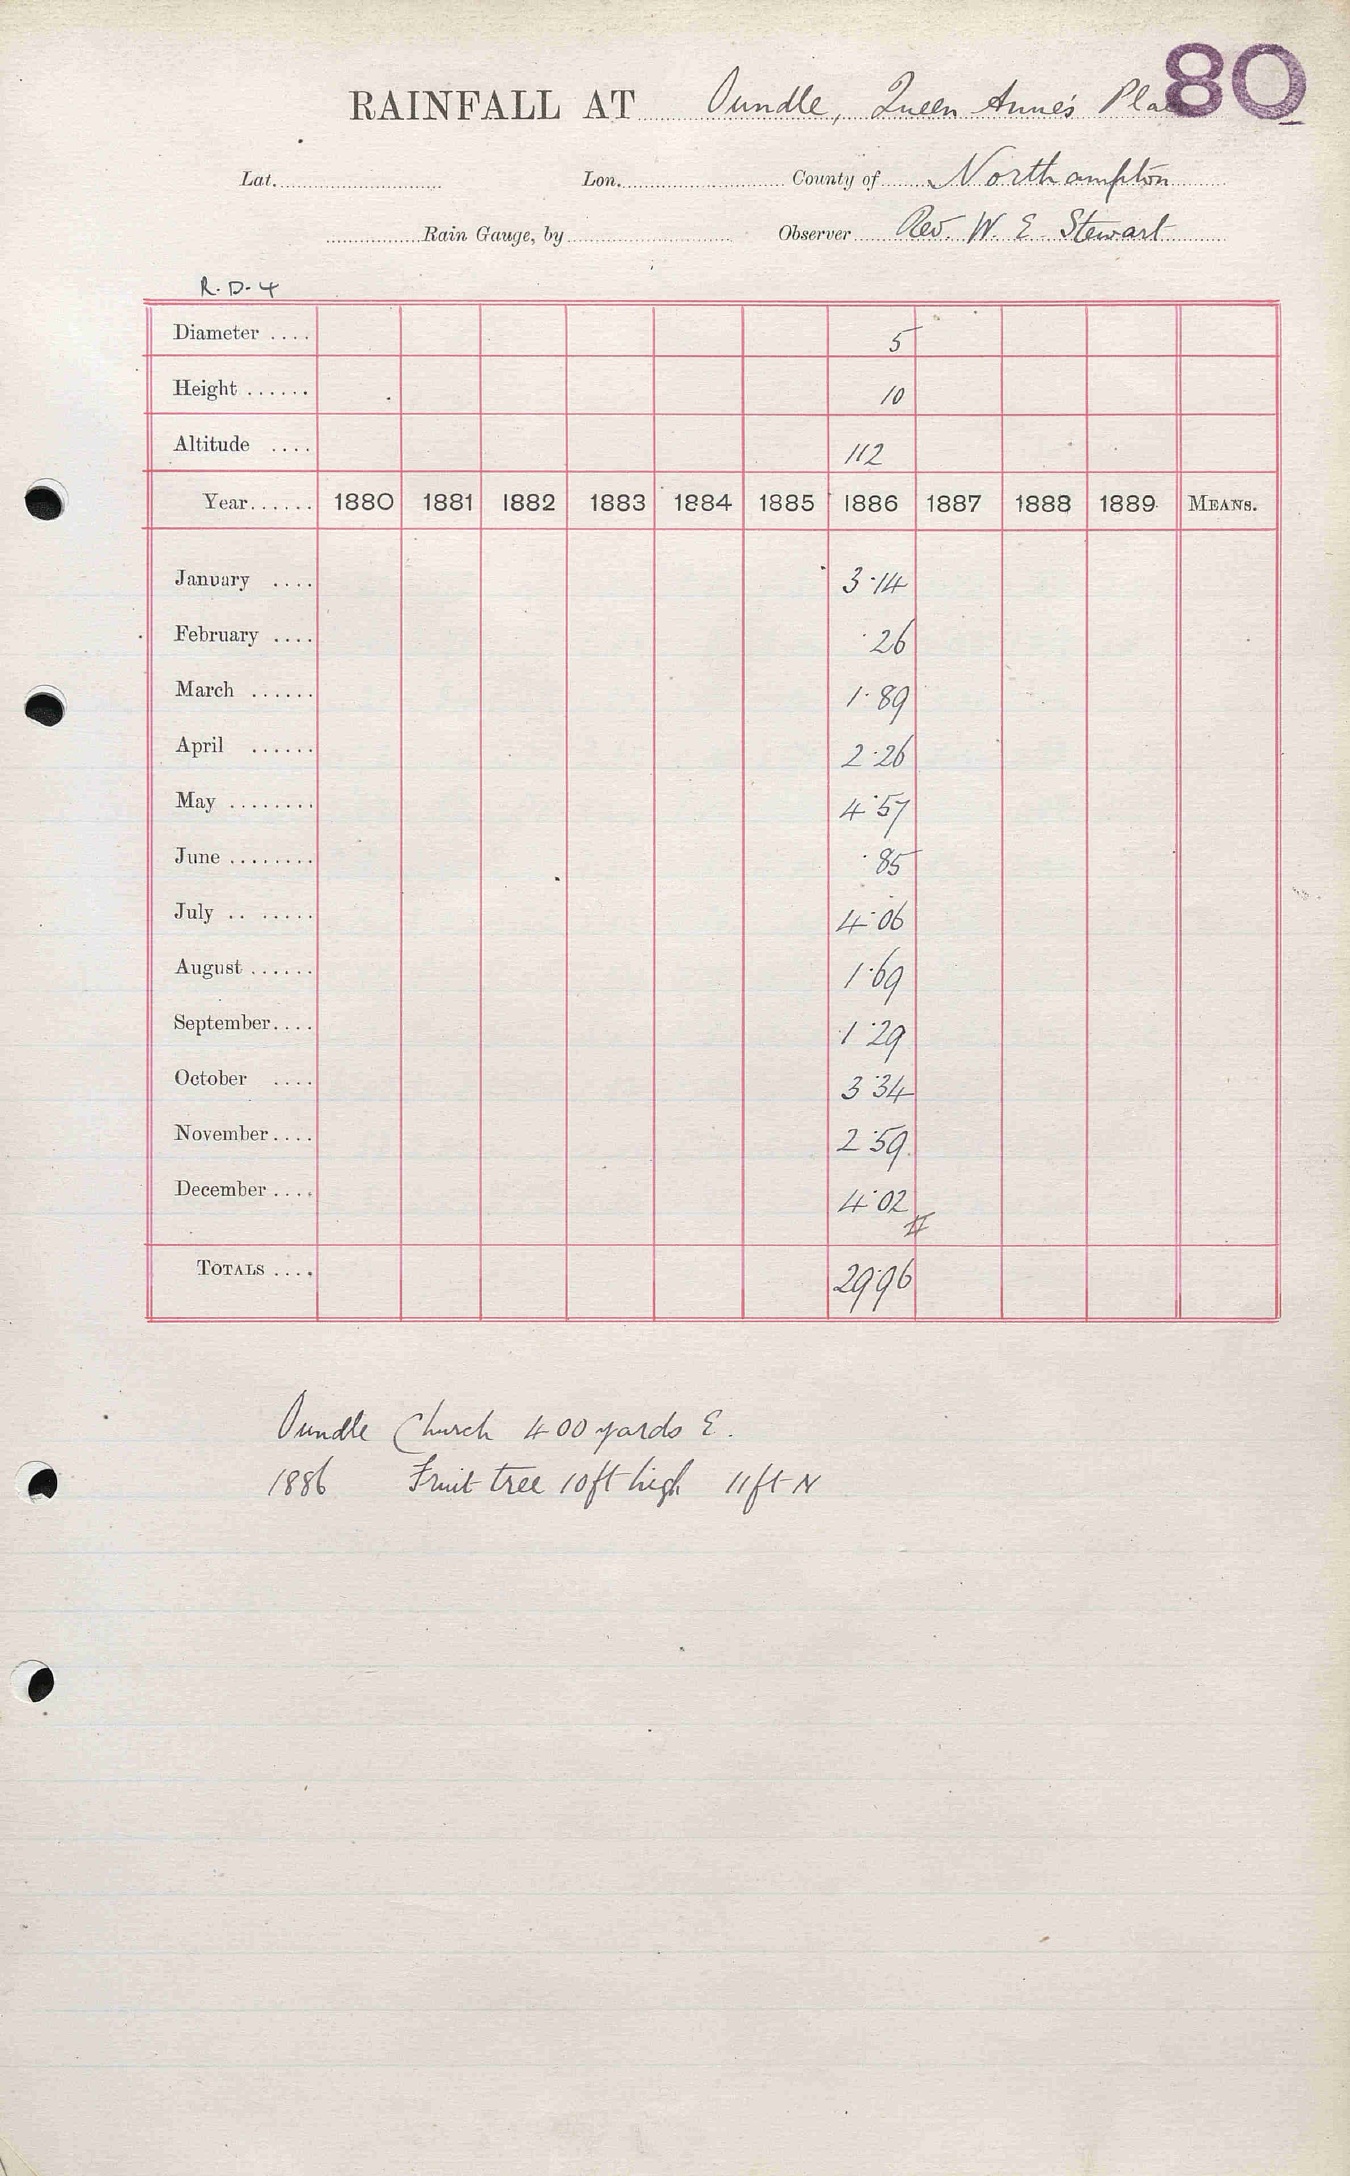 80
RAINFALL AT Oundle, Queen Anne's Place
Lat. Lon. County of Northampton
Rain Gauge, by Observer Rev. W. E. Stewart
R.D.4
Diameter .... 5
Height ...... 10
Altitude .... 112
Year...... 1880 1881 1882 1883 1884 1885 1886 1887 1888 1889 MEANS.
January .... 3.14
February .... .26
March ...... 1.89
April ...... 2.26
May ........ 4.57
June ........ .85
July .. ..... 4.06
August ...... 1.69
September.... 1.29
October .... 3.34
November.... 2.59
December .... 4.02
TOTALS .... 29.96
Oundle Church 400 yards E.
1886 Fruit tree 10ft high 11ft N